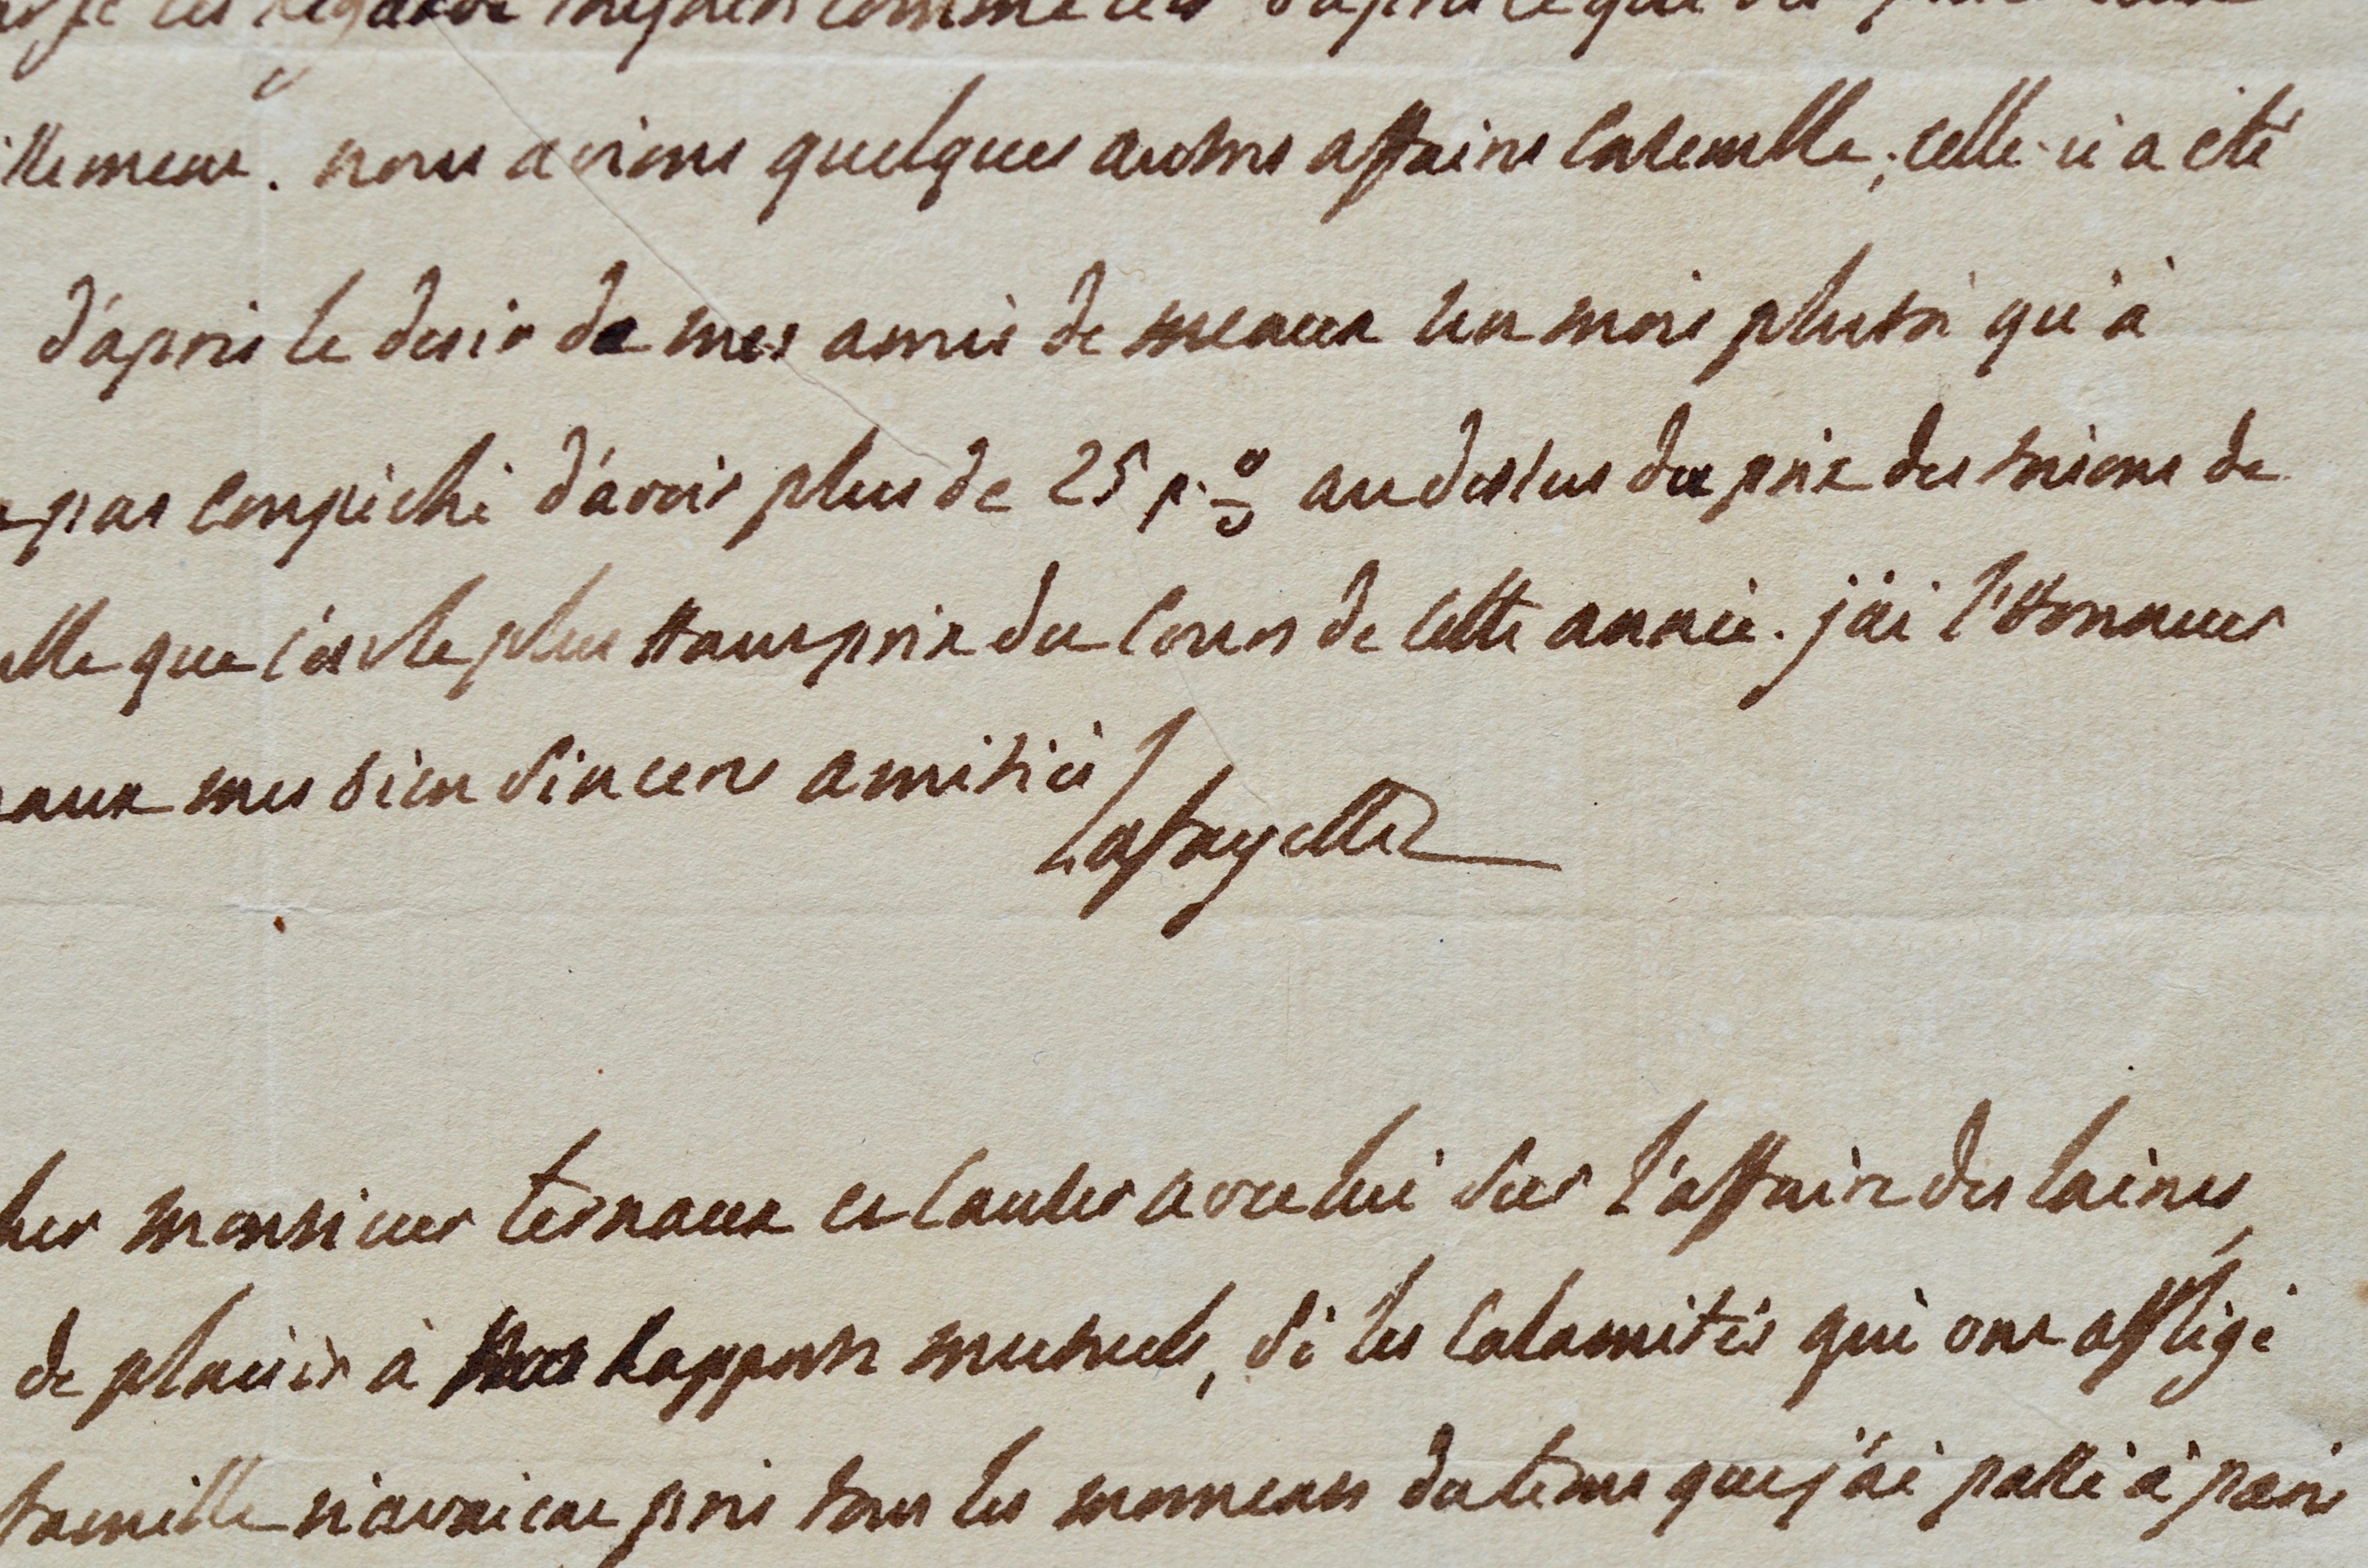 je les regarde comme d'après ce que
nous avions quelques autres affaires ensemble; celle-ci a été
d'après le desir de mes amis de meaux un mois plutôt qu'à
pas empêché d'avoir plus de 25 p. % au dessus du prix des miens de
que c'est le plus haut prix du cours de cette année. j'ai l'honneur
mes bien sinceres amitiés
Lafayette
monsieur ternaux et causer avec lui sur l'affaire des laines,
de plaisir à nos rapports mutuels, si les calamités qui ont affligé
famille n'avaient pris tous les momens du tems que j'ai passé à paris